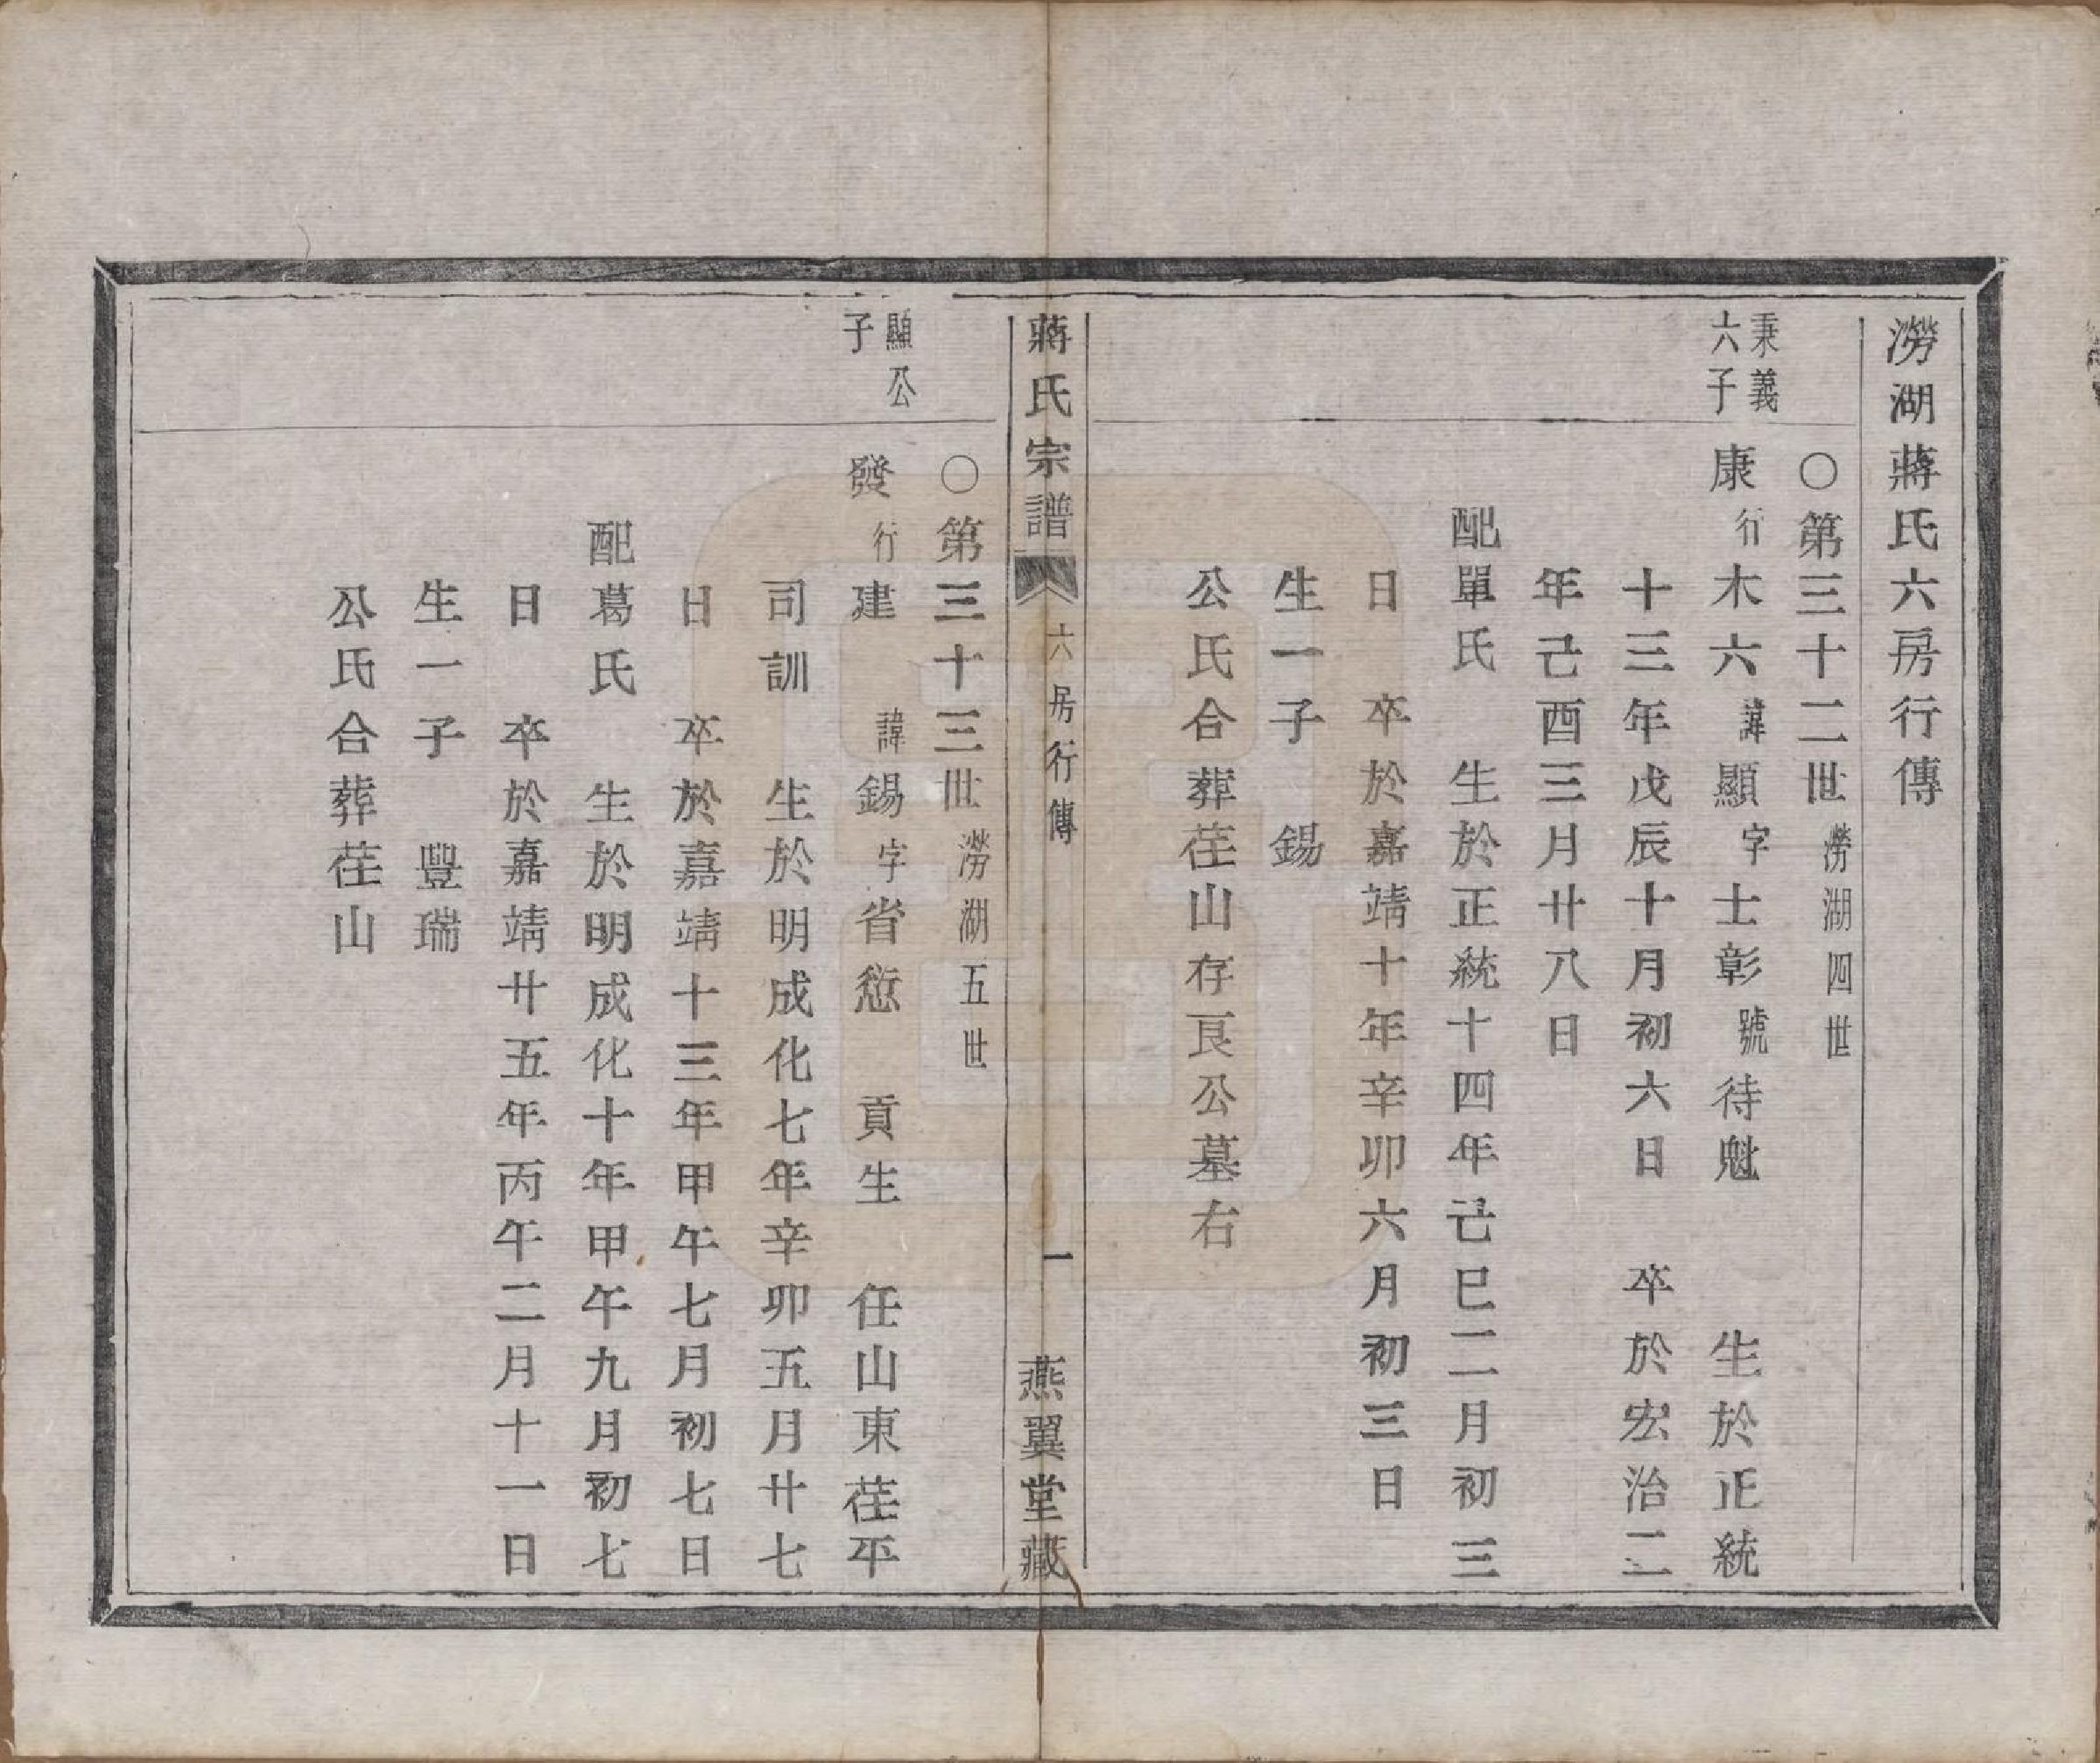 澇湖蔣氏六房行傳
○第三十二世澇湖四世
秉義
六子
康行木六諱顯字士彰號待魁　生於正統
十三年戊辰十月初六日　卒於宏治二
年己酉三月廿八日
配單氏　生於正統十四年己巳二月初三
日　卒於嘉靖十年辛卯六月初三日
生一子　錫
公氏合葬茌山存艮公墓右
蔣氏宗譜　六房行傳　一　燕翼堂藏
○第三十三世澇湖五世
顯公
子
發行建　諱錫字省愆　貢生　任山東茌平
司訓　生於明成化七年辛卯五月廿七
日　卒於嘉靖十三年甲午七月初七日
配葛氏　生於明成化十年甲午九月初七
日　卒於嘉靖廿五年丙午二月十一日
生一子　豐瑞
公氏合葬茌山